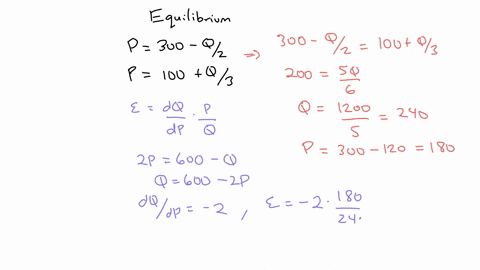 Equilibrium
P = 300 - Q/2
P = 100 + Q/3
=> 300 - Q/2 = 100 + Q/3
200 = 5Q/6
Q = 1200/5 = 240
P = 300 - 120 = 180
ε = dQ/dP · P/Q
2P = 600 - Q
Q = 600 - 2P
dQ/dP = -2 , ε = -2 · 180/24